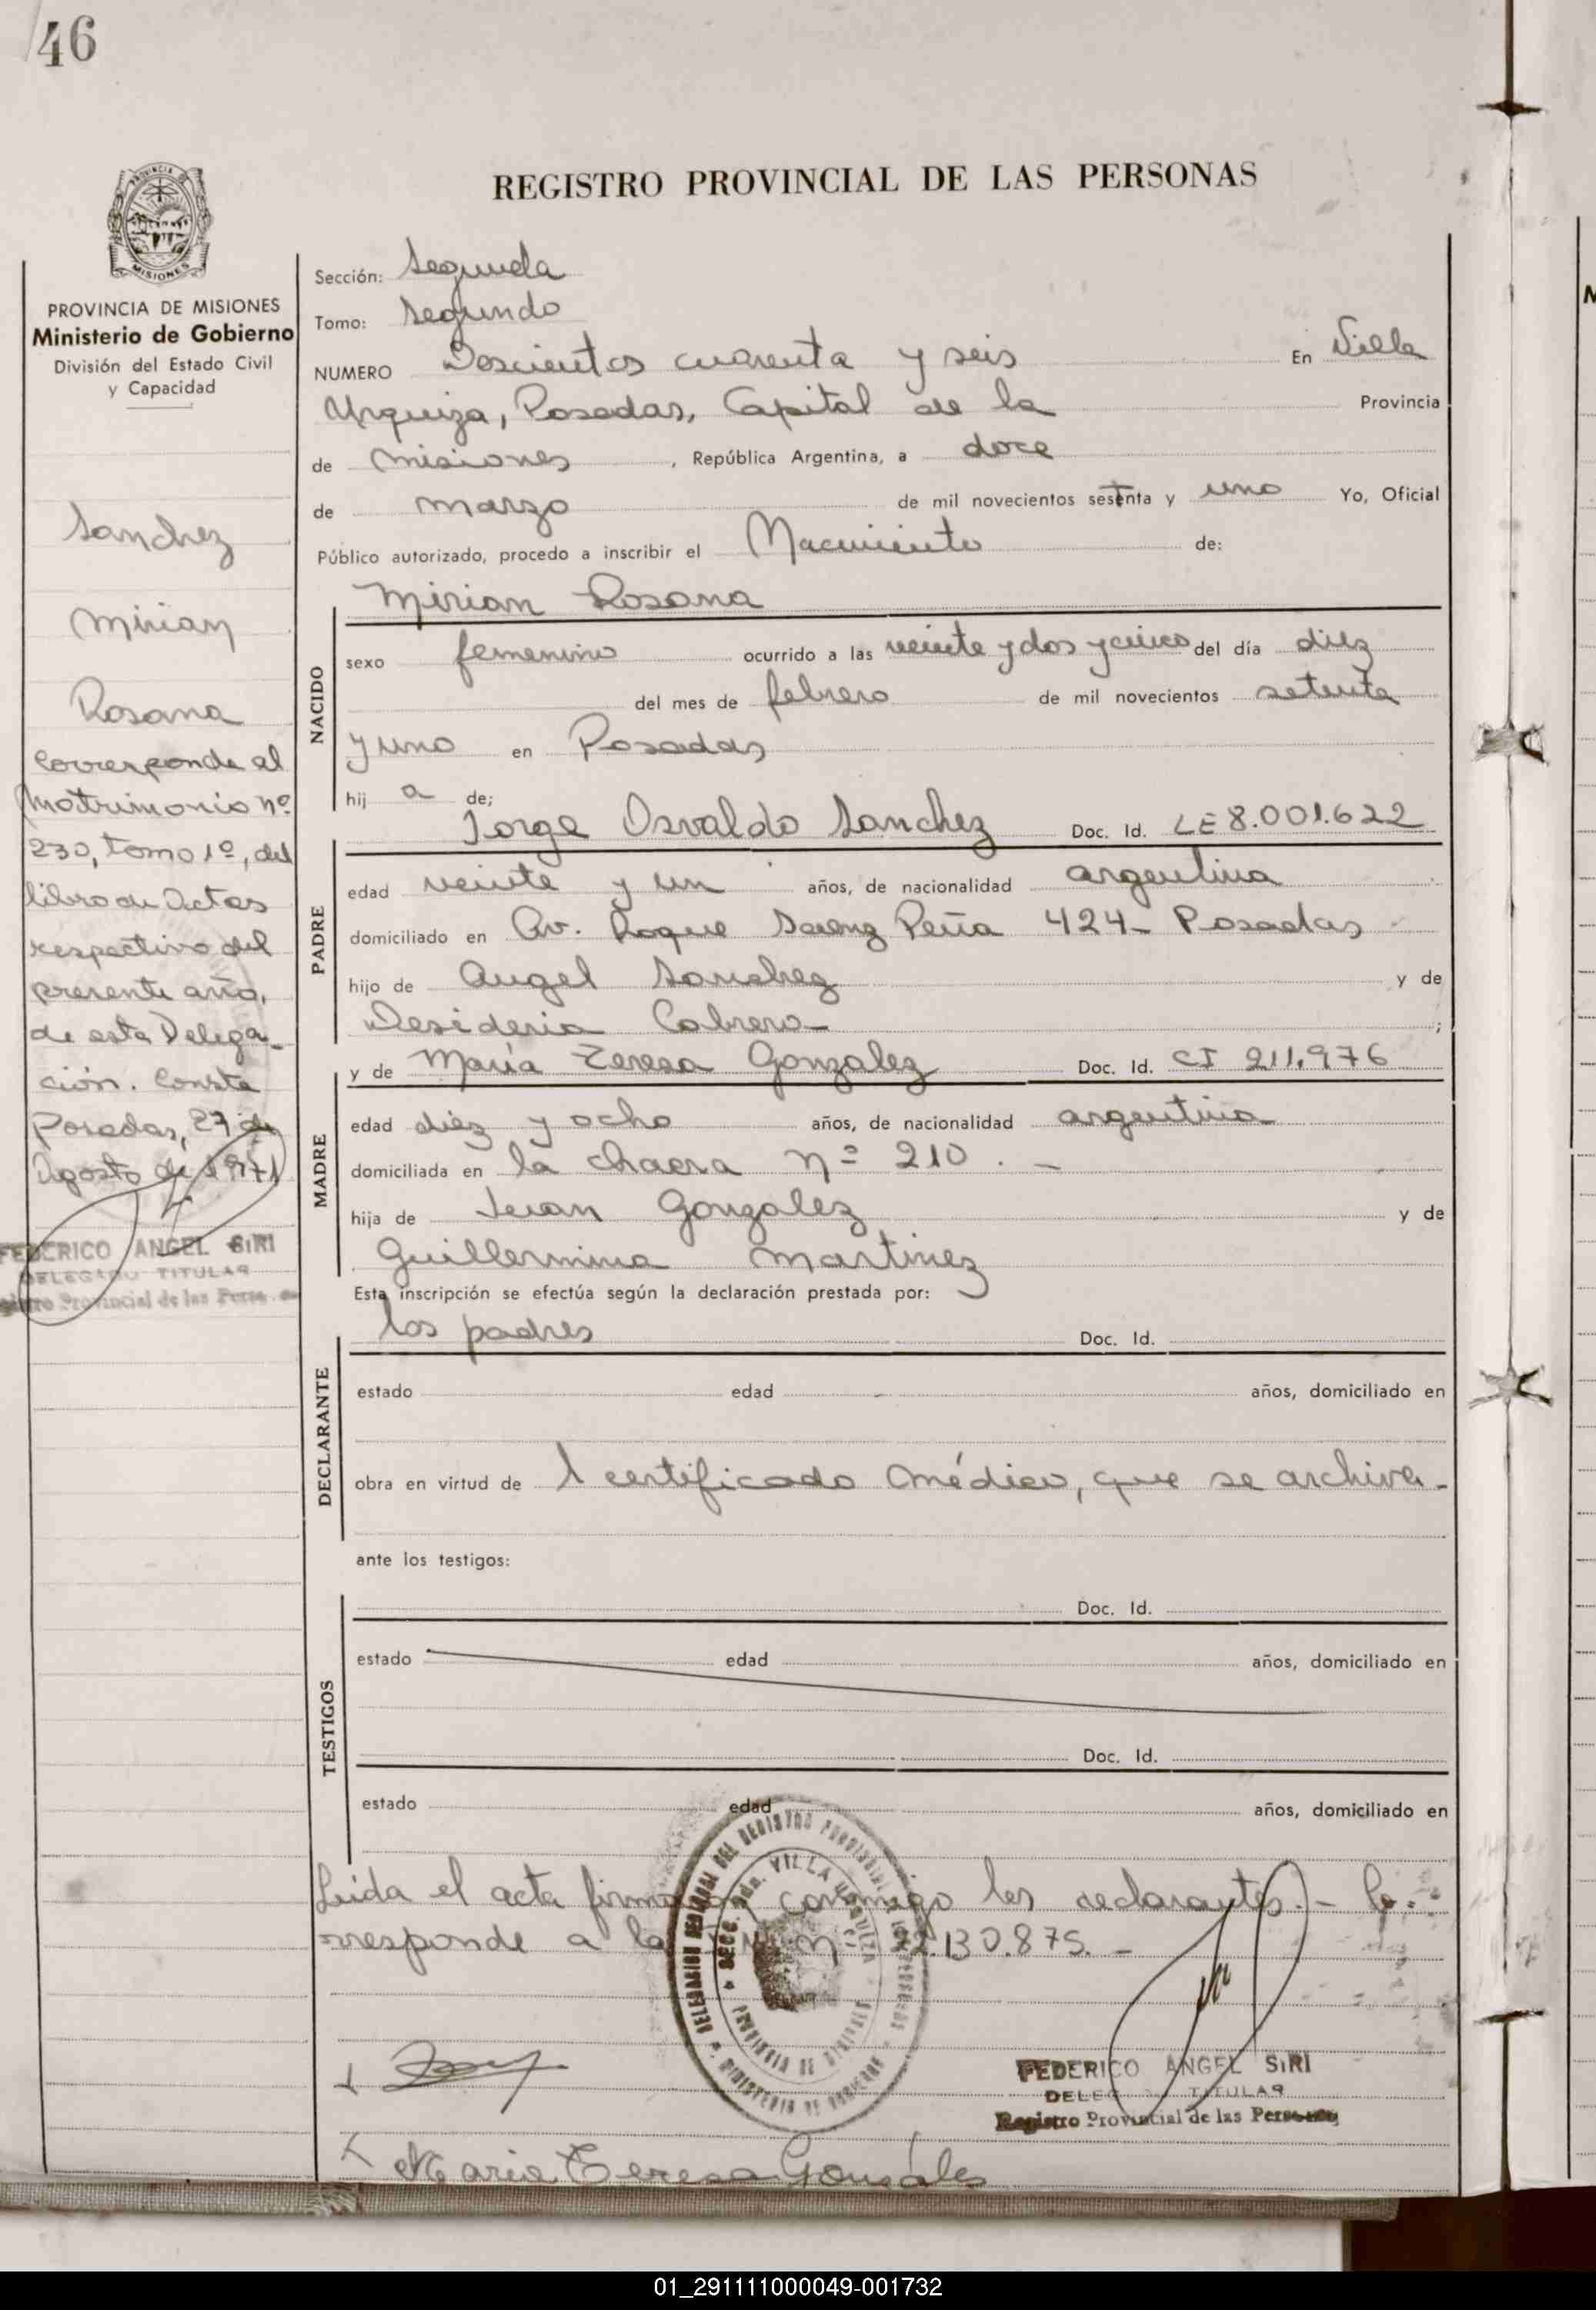 46
REGISTRO PROVINCIAL DE LAS PERSONAS
MISIONES
PROVINCIA DE MISIONES
Ministerio de Gobierno
División del Estado Civil
y Capacidad
Sanchez
Mirian
Rosana
Corresponde al
Matrimonio nº
230, tomo 1º, del
libro de Actas
respectivo del
presente año,
de esta Delega-
ción. Conste
Posadas, 27 de
Agosto de 1971
FEDERICO ANGEL SIRI
DELEGADO TITULAR
Registro Provincial de las Personas
Sección: Segunda
Tomo: Segundo
NUMERO Doscientos cuarenta y seis En Villa
Urquiza, Posadas, Capital de la Provincia
de Misiones, República Argentina, a doce
de marzo de mil novecientos setenta y uno Yo, Oficial
Público autorizado, procedo a inscribir el Nacimiento de:
Mirian Rosana
NACIDO
sexo femenino ocurrido a las veinte y dos y cinco del día diez
del mes de febrero de mil novecientos setenta
y uno en Posadas
hij a de;
Jorge Osvaldo Sanchez Doc. Id. LE 8.001.622
PADRE
edad veinte y un años, de nacionalidad argentina
domiciliado en Av. Roque Saenz Peña 424- Posadas
hijo de Angel Sanchez y de
Desideria Cabrera ;
y de María Teresa Gonzalez Doc. Id. CI 211.976
MADRE
edad diez y ocho años, de nacionalidad argentina
domiciliada en la chacra nº 210. -
hija de Juan Gonzalez y de
Guillermina Martinez
Esta inscripción se efectúa según la declaración prestada por:
los padres Doc. Id.
DECLARANTE
estado edad años, domiciliado en
obra en virtud de 1 certificado médico, que se archiva.
ante los testigos:
Doc. Id.
TESTIGOS
estado edad años, domiciliado en
Doc. Id.
estado edad años, domiciliado en
Leida el acta firman conmigo los declarantes. - Co-
rresponde a la nº 22.130.875. -
VILLA URQUIZA
PROVINCIA DE MISIONES
MINISTERIO DE GOBIERNO
FEDERICO ANGEL SIRI
DELEGADO TITULAR
Registro Provincial de las Personas
Maria Teresa Gonsales
01_291111000049-001732